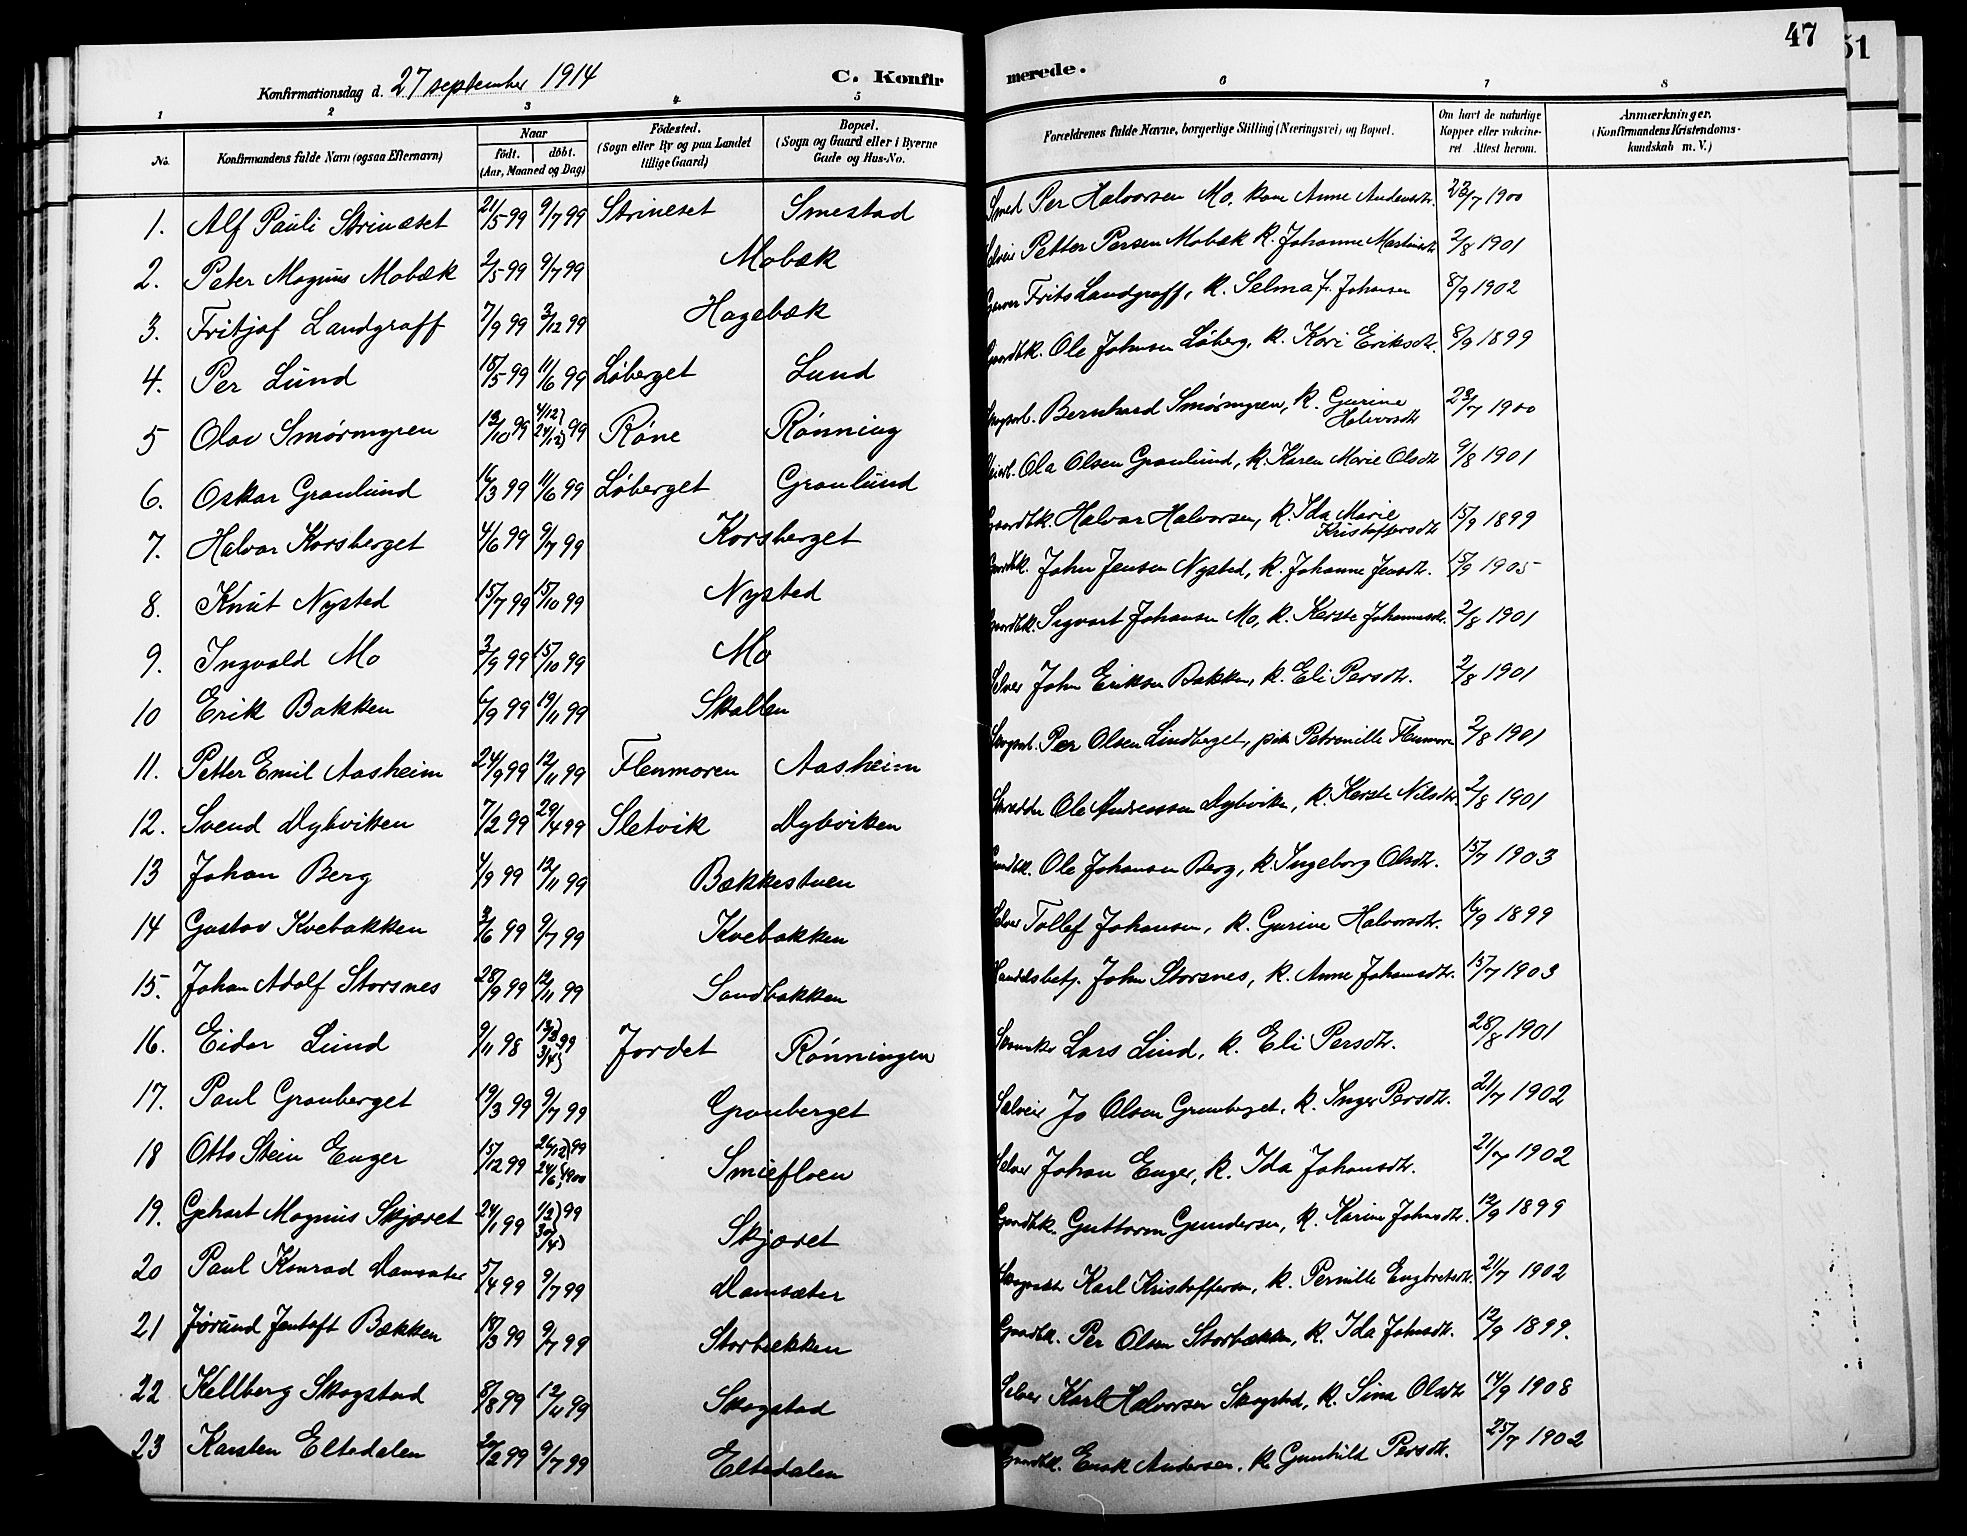 47
51
Konfirmationsdag d. 27 september 1914
C. Konfirmerede.
1 2 3 4 5 6 7 8
No.
Konfirmandens fulde Navn (ogsaa Efternavn)
Naar
født. døbt.
(Aar, Maaned og Dag)
Födested.
(Sogn eller By og paa Landet
tillige Gaard)
Bopæl.
(Sogn og Gaard eller i Byerne
Gade og Hus-No.
Forældrenes fulde Navne, borgerlige Stilling (Næringsvei) og Bopæl.
Om havt de naturlige
Kopper eller vaccine-
ret Attest herom.
Anmærkninger.
(Konfirmandens Kristendoms-
kundskab m. V.)
1. Alf Pauli Strinæset 21/5 99 9/7 99 Strineset Smestad Smed Per Halvorsen Mo, kone Anne Andersdtr. 23/7 1900
2. Peter Magnus Mobæk 2/5 99 9/7 99 Mobæk Petter Persen Mobæk k. Johanne 2/8 1901
3. Fritjof Landgraff 7/9 99 3/12 99 Hagebæk Frits Landgraff, k. Selma J. Johansen 8/9 1902
4. Per Lund 18/5 99 11/6 99 Løberget Lund Gaardbk. Ole Johnsen Løberg, k. Kari Eriksdtr. 8/9 1899
5 Olav Smørmyren 13/10 99 4/12 24/12 99 Røne Rønning Bernhard Smørmyren, k. Gurine
Halvorsdtr 23/7 1900
6. Oskar Granlund 16/3 99 11/6 99 Løberget Granlund Ola Olsen Granlund, k. Karen Marie Olsdtr 9/8 1901
7. Halvar Korsberget 4/6 99 9/7 99 Korsberget Gaardbk. Halvar Halvorsen, k. Ida Marie
Kristoffersdtr 15/9 1899
8. Knut Nysted 15/7 99 15/10 99 Nysted Gaardbk. John Jensen Nysted, k. Johanne Jensdtr. 15/9 1905
9. Ingvald Mo 3/9 99 15/10 99 Mo Gaardbk. Sigvart Johansen Mo, k. Kerste Johannesdtr. 2/8 1901
10 Erik Bakken 6/9 99 19/11 99 Skallen Selveier John Eriksen Bakken, k. Eli Persdtr. 2/8 1901
11. Petter Emil Aasheim 24/9 99 12/11 99 Flenmoren Aasheim Per Olsen Lindberget, pike Petronille Flenmoren 2/8 1901
12. Svend Dybviken 7/2 99 29/4 99 Sletvik Dybviken Skrædder Ole Andreassen Dybviken, k. Kerste Nilsdtr. 2/8 1901
13 Johan Berg 4/9 99 12/11 99 Bækkestuen Gaardbk. Ole Johansen Berg, k. Ingeborg Olsdtr. 15/7 1903
14 Gustav Kvebakken 3/6 99 9/7 99 Kvebakken Selveier Tollef Johansen, k. Gurine Halvorsdtr. 16/9 1899
15. Johan Adolf Storsnes 28/9 99 12/11 99 Sandbakken Handelsbetj. John Storsnes, k. Anne Johansdtr. 15/7 1903
16. Eidar Lund 9/11 98 12/3 99 3/4 Jordet Rønningen Lars Lund, k. Eli Persdtr. 28/8 1901
17. Paul Granberget 19/3 99 9/7 99 Granberget Selveier Jo Olsen Granberget, k. Inger Persdtr. 21/7 1902
18 Otto Stein Enger 15/12 99 26/12 99 24/6 1900 Smiefloen Selveier Johan Enger, k. Ida Johansdtr. 21/7 1902
19. Gehart Magnus Skjæret 24/1 99 1/3 99 30/4 Skjæret Gaardbk. Guttorm Gundersen, k. Karine Johnsdtr. 12/9 1899
20 Paul Konrad Damsæter 5/4 99 9/7 99 Damsæter Karl Kristoffersen, k. Pernille Engbretsdtr. 21/7 1902
21 Jørund Jentoft Bækken 18/3 99 9/7 99 Storbækken Gaardbk. Per Olsen Storbækken, k. Ida Johnsdtr. 12/9 1899.
22 Kellberg Skogstad 8/8 99 12/11 99 Skogstad Selveier Karl Halvorsen Skogstad, k. Sina Olsdtr 14/9 1908
23 Karsten Eltedalen 27/2 99 9/7 99 Eltedalen Gaardbk. Enok Andersen, k. Gunhild Persdtr. 25/7 1902